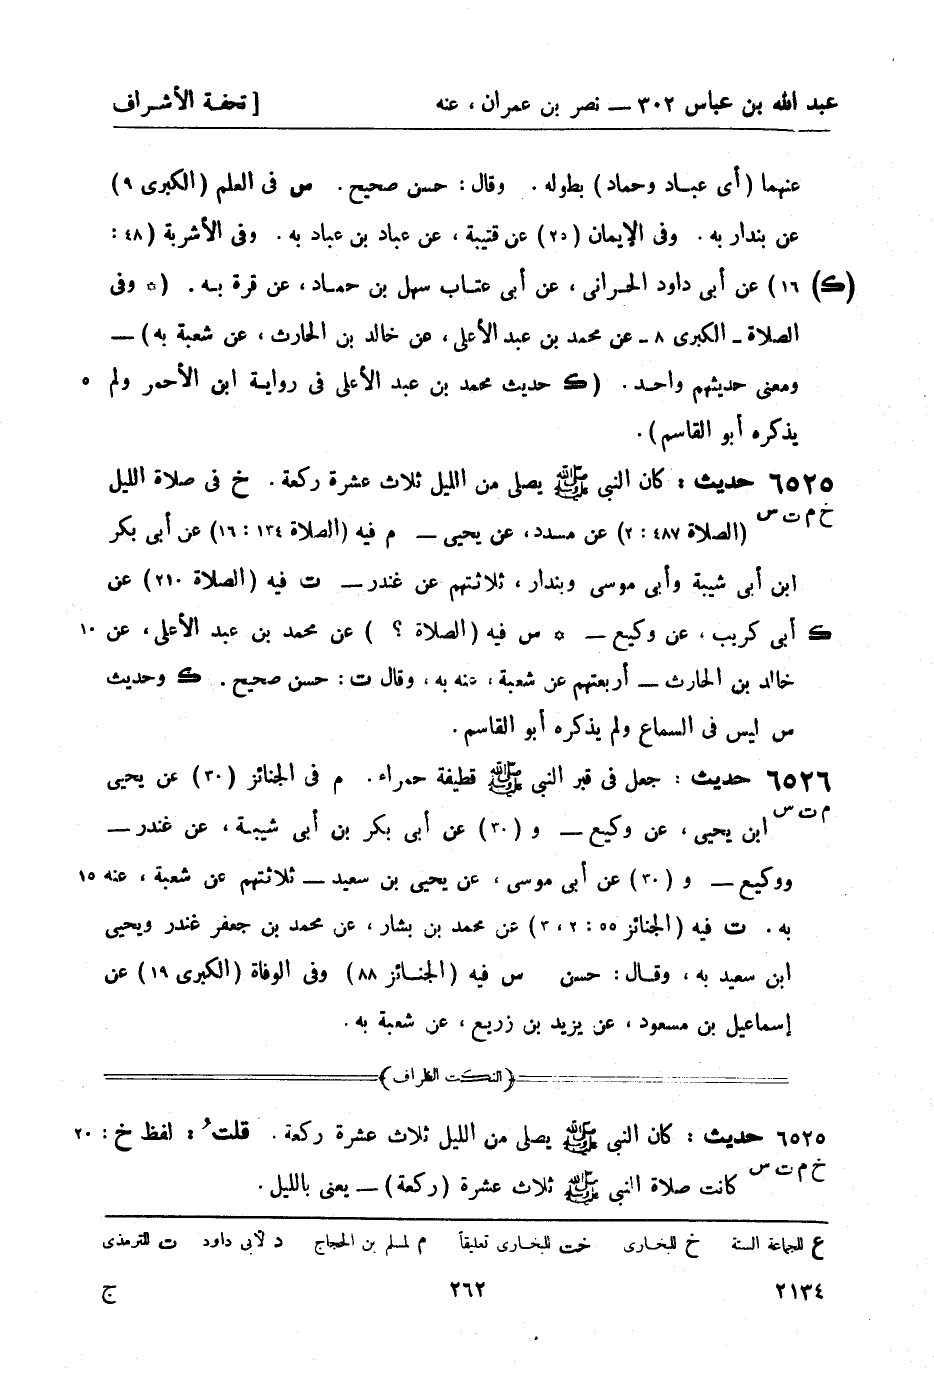 عبد الله بن عباس ٣٠٢ — نصر بن عمران ، عنه [ تحفة الأشراف
عنهما (أى عباد وحماد) بطوله . وقال : حسن صحيح . س فى العلم (الكبرى ٩)
عن بندار به . وفى الإيمان (٢٥) عن قتيبة ، عن عباد بن عباد به . وفى الأشربة (٤٨ :
(ك) ١٦) عن أبى داود الحرانى ، عن أبى عتاب سهل بن حماد ، عن قرة به . (* وفى
الصلاة ـ الكبرى ٨ ـ عن محمد بن عبد الأعلى ، عن خالد بن الحارث ، عن شعبة به) —
ومعنى حديثهم واحد . (ك حديث محمد بن عبد الأعلى فى رواية ابن الأحمر ولم ٥
يذكره أبو القاسم) .
٦٥٢٥ حديث : كان النبى ﷺ يصلى من الليل ثلاث عشرة ركعة . خ فى صلاة الليل
خ م ت س (الصلاة ٤٨٧ : ٢) عن مسدد ، عن يحيى — م فيه (الصلاة ١٣٤ : ١٦) عن أبى بكر
ابن أبى شيبة وأبى موسى وبندار ، ثلاثتهم عن غندر — ت فيه (الصلاة ٢١٠) عن
ك أبى كريب ، عن وكيع — * س فيه (الصلاة ؟ ) عن محمد بن عبد الأعلى ، عن ١٠
خالد بن الحارث — أربعتهم عن شعبة ، عنه به ، وقال ت : حسن صحيح . ك وحديث
س ليس فى السماع ولم يذكره أبو القاسم .
٦٥٢٦ حديث : جعل فى قبر النبى ﷺ قطيفة حمراء . م فى الجنائز (٣٠) عن يحيى
م ت س ابن يحيى ، عن وكيع — و (٣٠) عن أبى بكر بن أبى شيبة ، عن غندر —
ووكيع — و (٣٠) عن أبى موسى ، عن يحيى بن سعيد — ثلاثتهم عن شعبة ، عنه ١٥
به . ت فيه (الجنائز ٥٥ : ٢ ، ٣) عن محمد بن بشار ، عن محمد بن جعفر غندر ويحيى
ابن سعيد به ، وقال : حسن س فيه (الجنائز ٨٨) وفى الوفاة (الكبرى ١٩) عن
إسماعيل بن مسعود ، عن يزيد بن زريع ، عن شعبة به .
(النكت الظراف)
٦٥٢٥ حديث : كان النبى ﷺ يصلى من الليل ثلاث عشرة ركعة . قلتُ : لفظ خ : ٢٠
خ م ت س كانت صلاة النبى ﷺ ثلاث عشرة (ركعة) — يعنى بالليل .
ع للجماعة الستة خ للبخارى خت للبخارى تعليقاً م لمسلم بن الحجاج د لأبى داود ت للترمذى
٢١٣٤ ٢٦٢ ج